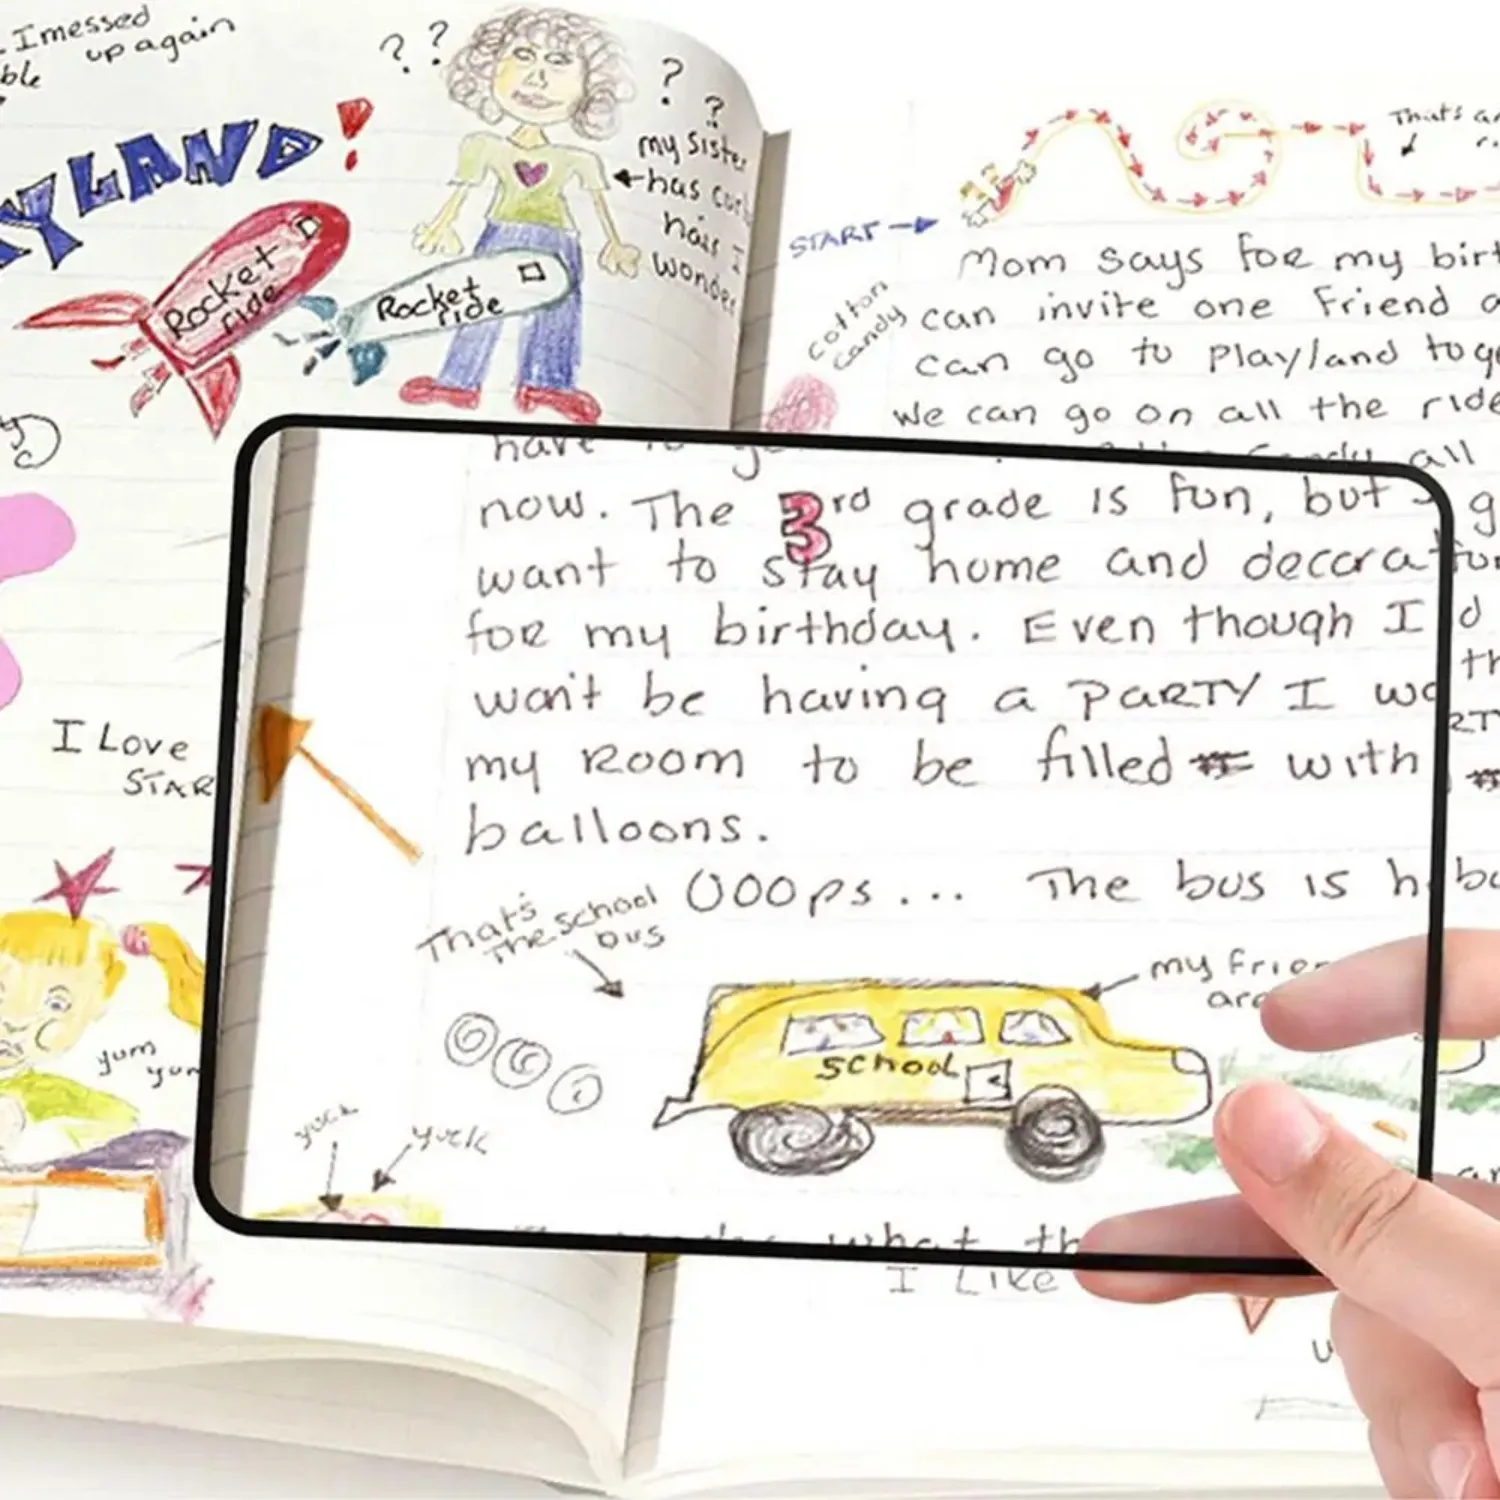 I messed
up again
ble
? ?
? ?
YLAND!
my Siste
has curl
hair I
wonder
Rocket
ride
Rocket
ride
I Love
STAR
yum
yum
START
cotton
candy
That's a
Mom says for my birt
can invite one friend a
can go to Playland toge
We can go on all the ride
all
have to g
now. The 3rd grade is fun, but
want to stay home and decora
for my birthday. Even though I
won't be having a PARTY I wa
my Room to be filled with
balloons.
OOOps... The bus is h
That's
the school
bus
my frie
are
school
yuck
yuck
what th
I Like